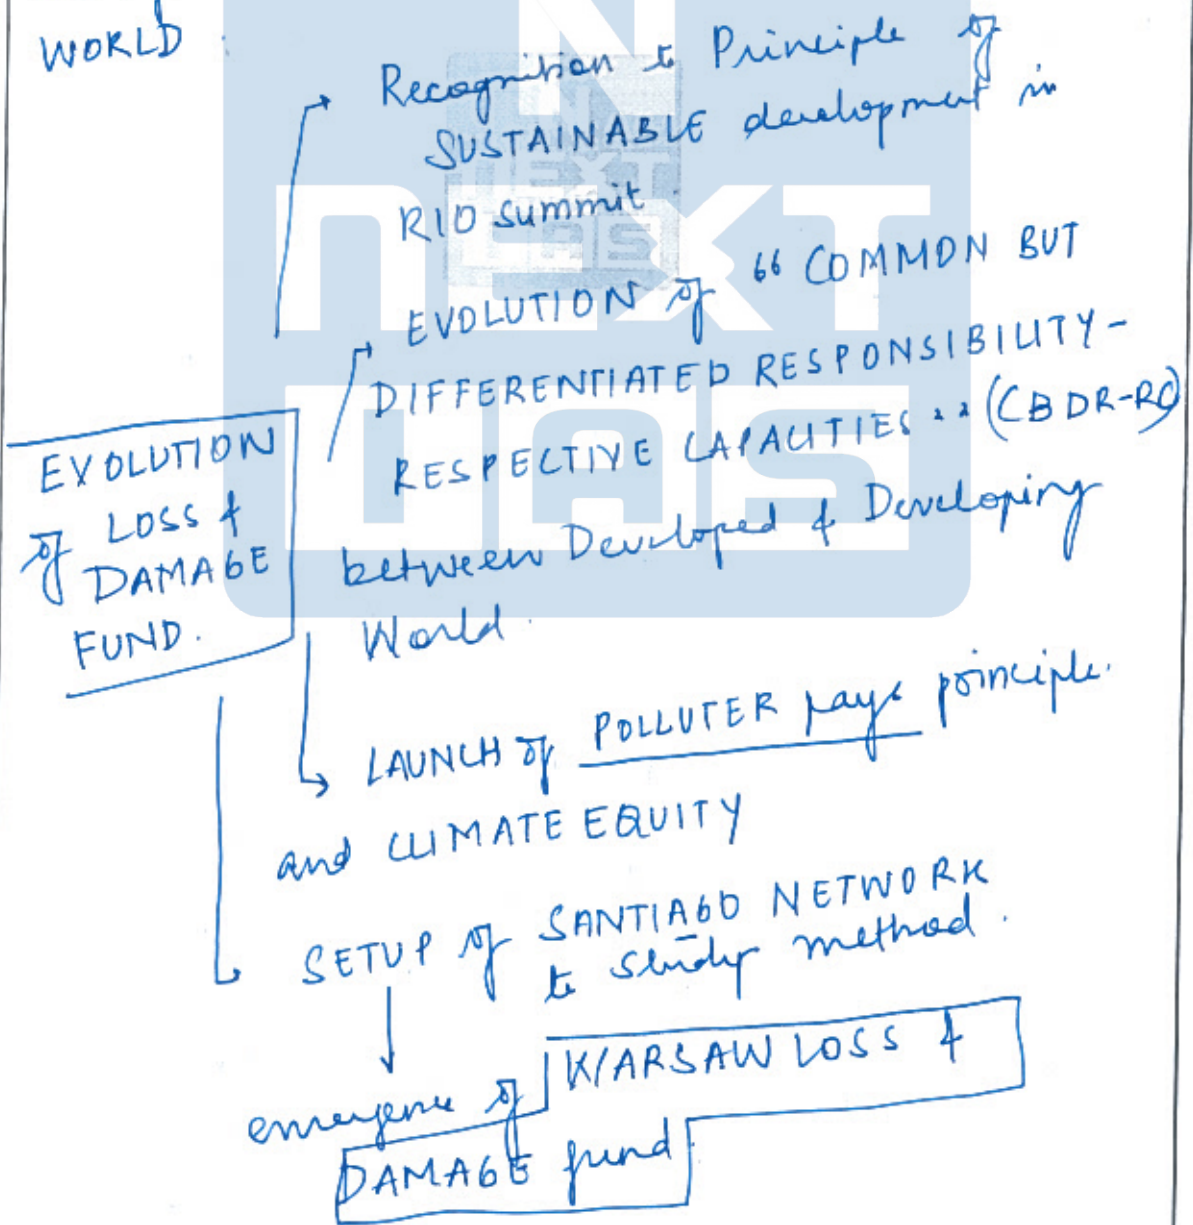 WORLD
Recognition to Principle of
SUSTAINABLE development in
RIO Summit.
EVOLUTION of "COMMON BUT
DIFFERENTIATED RESPONSIBILITY-
RESPECTIVE CAPACITIES" (CBDR-RC)
between Developed & Developing
World.
EVOLUTION
of LOSS &
DAMAGE
FUND.
LAUNCH of POLLUTER pays principle.
and CLIMATE EQUITY
SETUP of SANTIAGO NETWORK
to study method.
emergence of WARSAW LOSS &
DAMAGE fund
NEXT
IAS